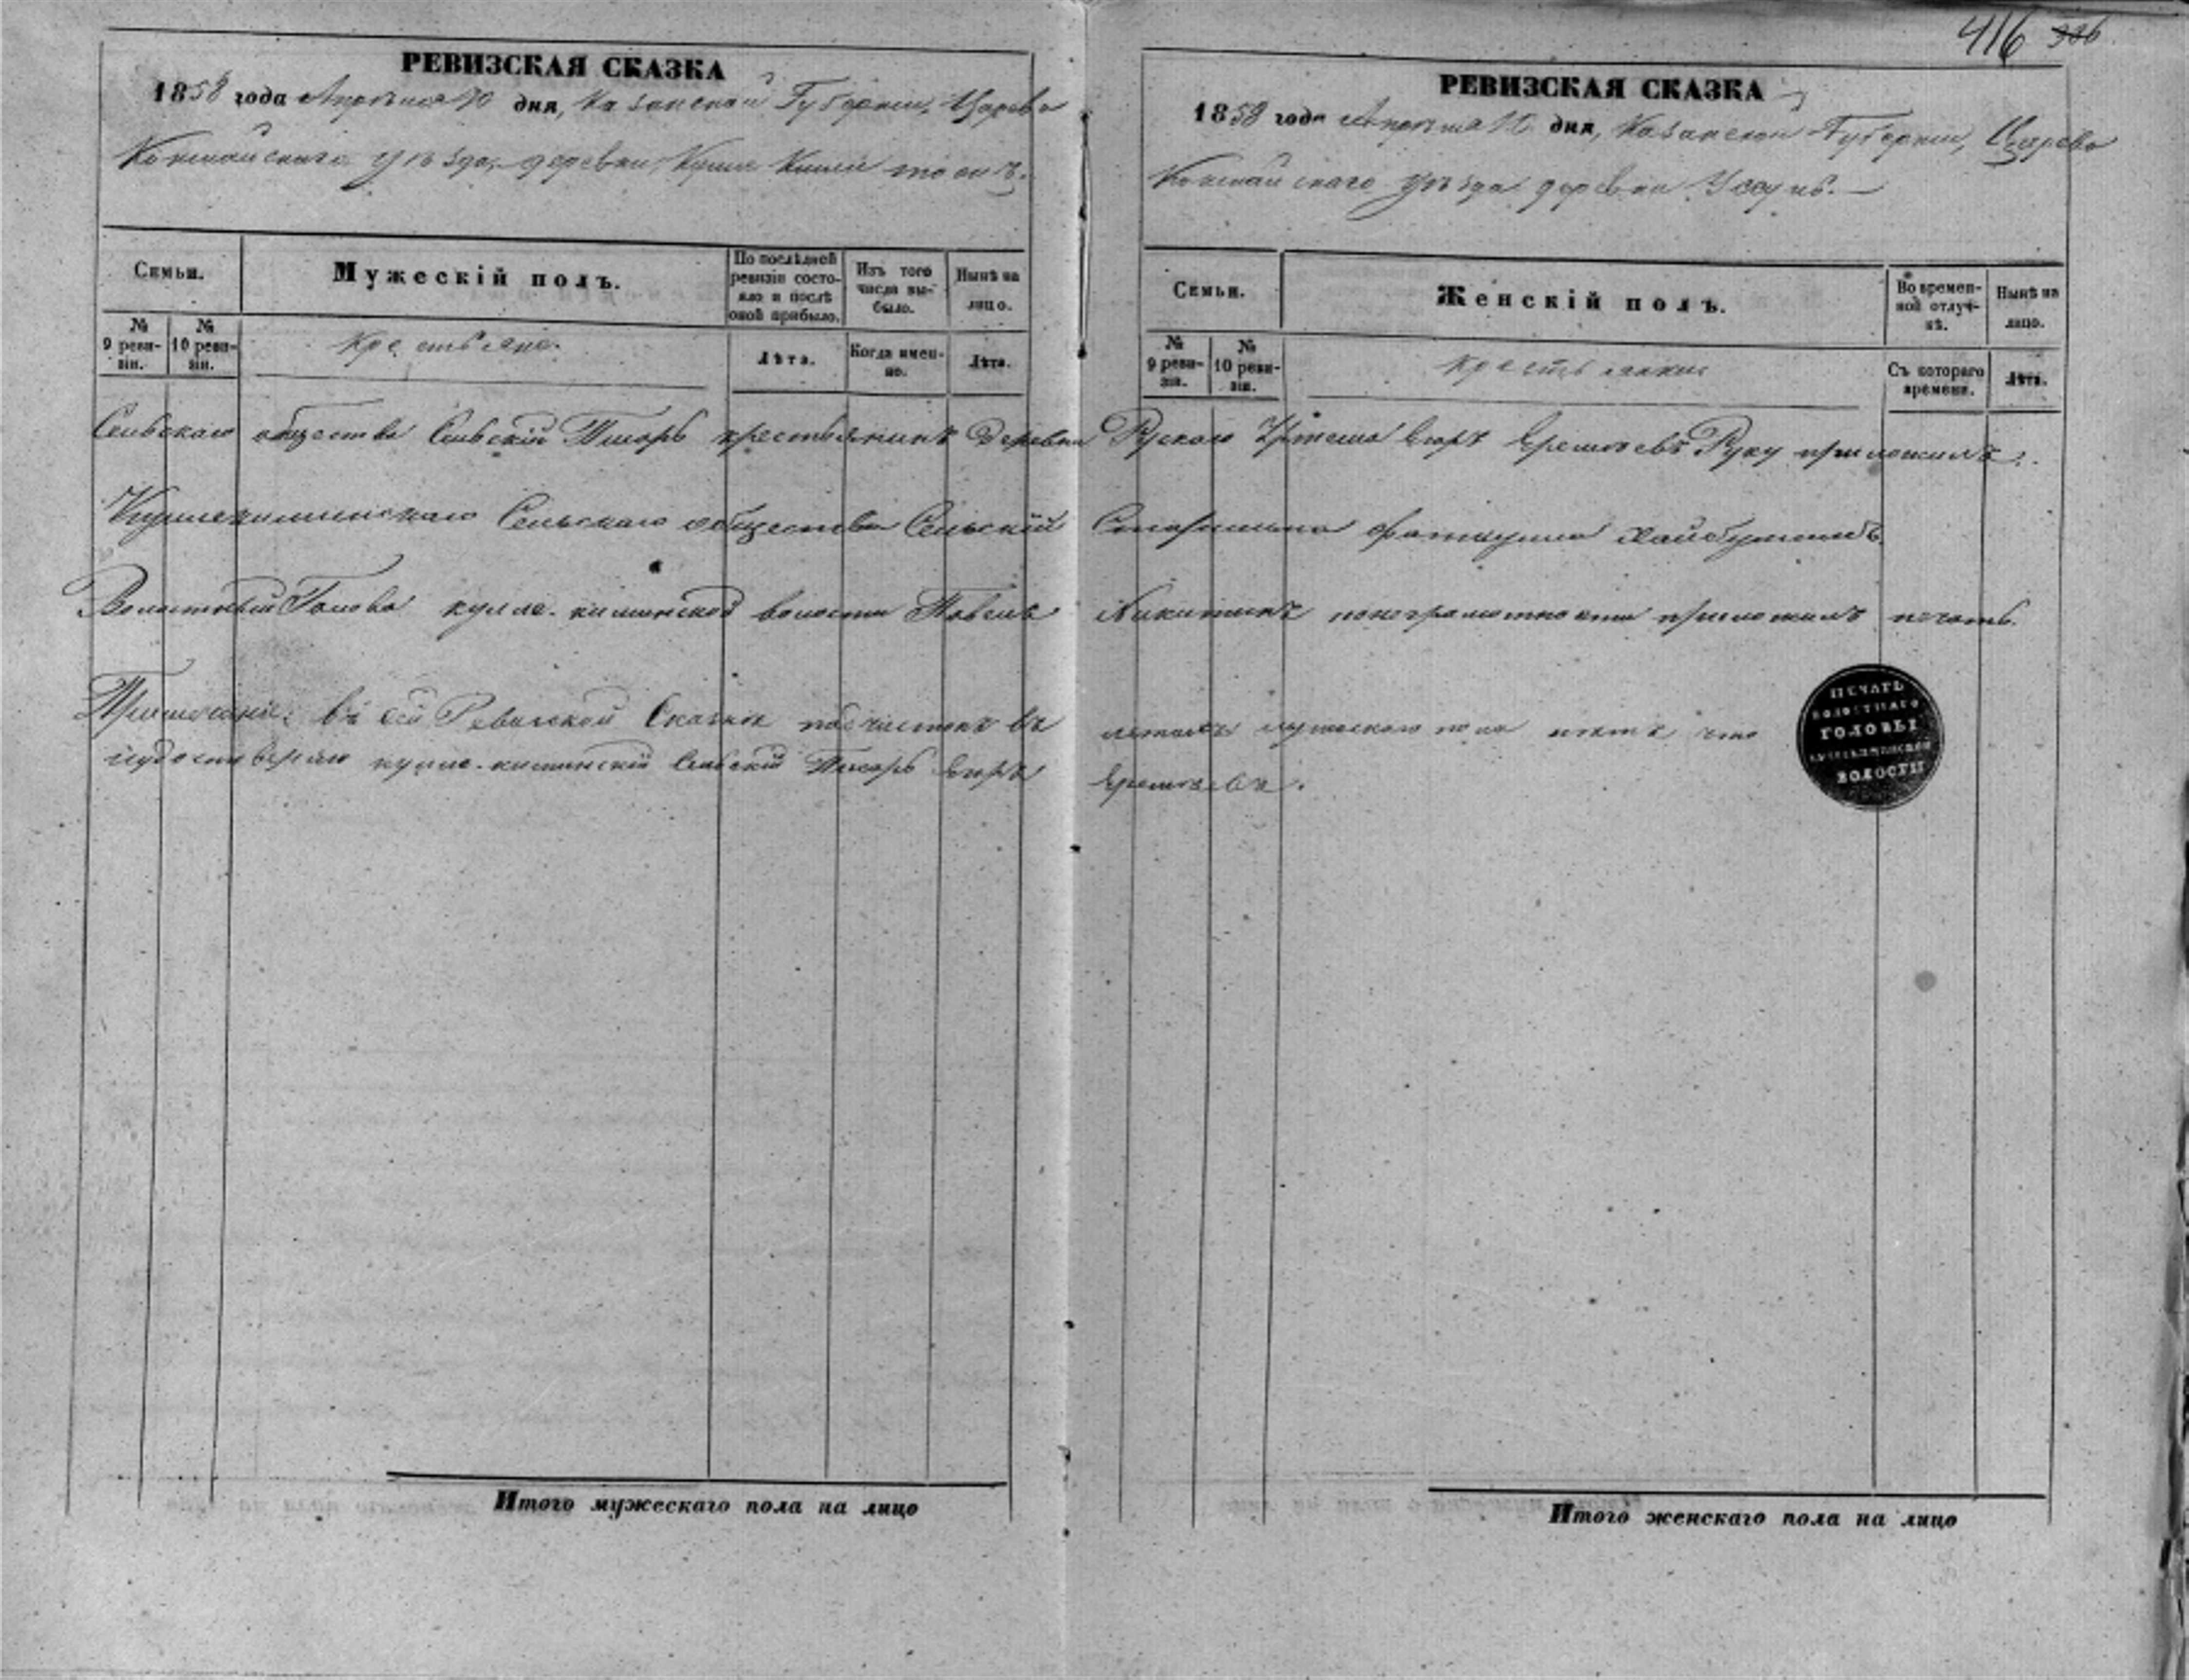 416 306
РЕВИЗСКАЯ СКАЗКА
1858 года Апреля 10 дня, Казанской Губернии, Царево
Кокшайскаго уезда, деревни Куле Кими тожъ.
Семьи.
Мужескій полъ.
По послѣдней ревизіи состояло и послѣ оной прибыло.
Изъ того числа выбыло.
Нынѣ на лицо.
№ 9 ревизіи.
№ 10 ревизіи.
Крестьяне.
Лѣта.
Когда именно.
Лѣта.
РЕВИЗСКАЯ СКАЗКА
1858 года Апреля 10 дня, Казанской Губернии, Царево
Кокшайскаго уезда деревни
Семьи.
Женскій полъ.
Во временной отлучкѣ.
Нынѣ на лицо.
№ 9 ревизіи.
№ 10 ревизіи.
Крестьянки
Съ котораго времени.
Лѣта.
Сельскаго общества Сельскій Писарь крестьянинъ деревни Рускаго Уртема Егоръ Еремѣевъ Руку приложилъ.
Кулле киминскаго Сельскаго общества Сельскій Старшина Хайбуллинъ.
Волостный Голова кулле-киминской волости Павелъ Никитинъ понеграмотности приложилъ печать.
Примечание: въ сей Ревизской Сказке подчистокъ въ летахъ мужескаго пола что
удостоверяю кулле-киминскій Сельскій Писарь Егоръ Еремѣевъ.
ПЕЧАТЬ
ВОЛОСТНАГО
ГОЛОВЫ
ВОЛОСТИ
Итого мужескаго пола на лицо
Итого женскаго пола на лицо